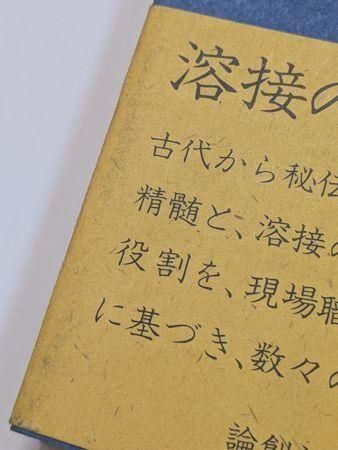 溶接の
古代から秘伝
精髄と、溶接の
役割を、現場職
に基づき、数々の
論創